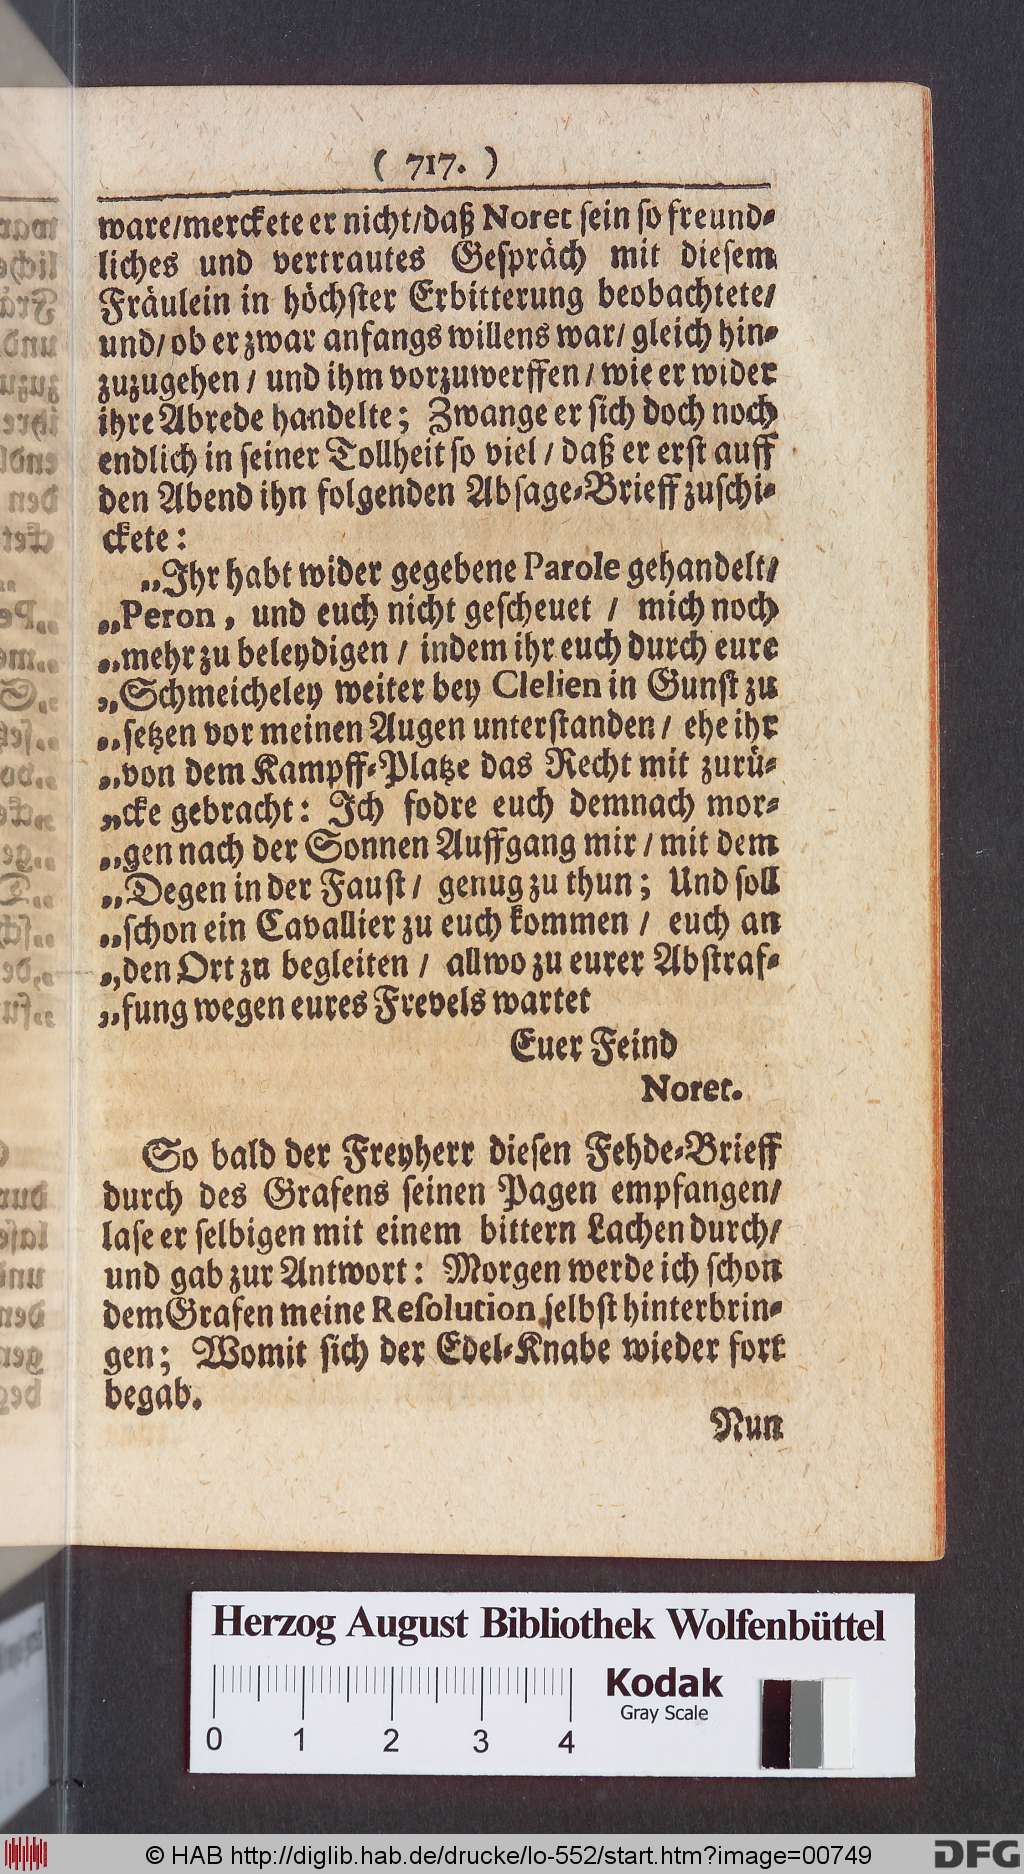 ( 717. )
ware/merckete er nicht/daß Noret sein so freund-
liches und vertrautes Gespräch mit diesem
Fräulein in höchster Erbitterung beobachtete/
und/ ob er zwar anfangs willens war/ gleich hin-
zuzugehen / und ihm vorzuwerffen / wie er wider
ihre Abrede handelte; Zwange er sich doch noch
endlich in seiner Tollheit so viel / daß er erst auff
den Abend ihn folgenden Absage-Brieff zuschi-
ckete:
„Ihr habt wider gegebene Parole gehandelt/
„Peron, und euch nicht gescheuet / mich noch
„mehr zu beleydigen / indem ihr euch durch eure
„Schmeicheley weiter bey Clelien in Gunst zu
„setzen vor meinen Augen unterstanden / ehe ihr
„von dem Kampff-Platze das Recht mit zurü-
„cke gebracht: Ich fodre euch demnach mor-
„gen nach der Sonnen Auffgang mir / mit dem
„Degen in der Faust / genug zu thun; Und soll
„schon ein Cavallier zu euch kommen / euch an
„den Ort zu begleiten / allwo zu eurer Abstraf-
„fung wegen eures Frevels wartet
Euer Feind
Noret.
So bald der Freyherr diesen Fehde-Brieff
durch des Grafens seinen Pagen empfangen/
lase er selbigen mit einem bittern Lachen durch/
und gab zur Antwort: Morgen werde ich schon
dem Grafen meine Resolution selbst hinterbrin-
gen; Womit sich der Edel-Knabe wieder fort
begab.
Nun
Herzog August Bibliothek Wolfenbüttel
Kodak
Gray Scale
0 1 2 3 4
© HAB http://diglib.hab.de/drucke/lo-552/start.htm?image=00749
DFG